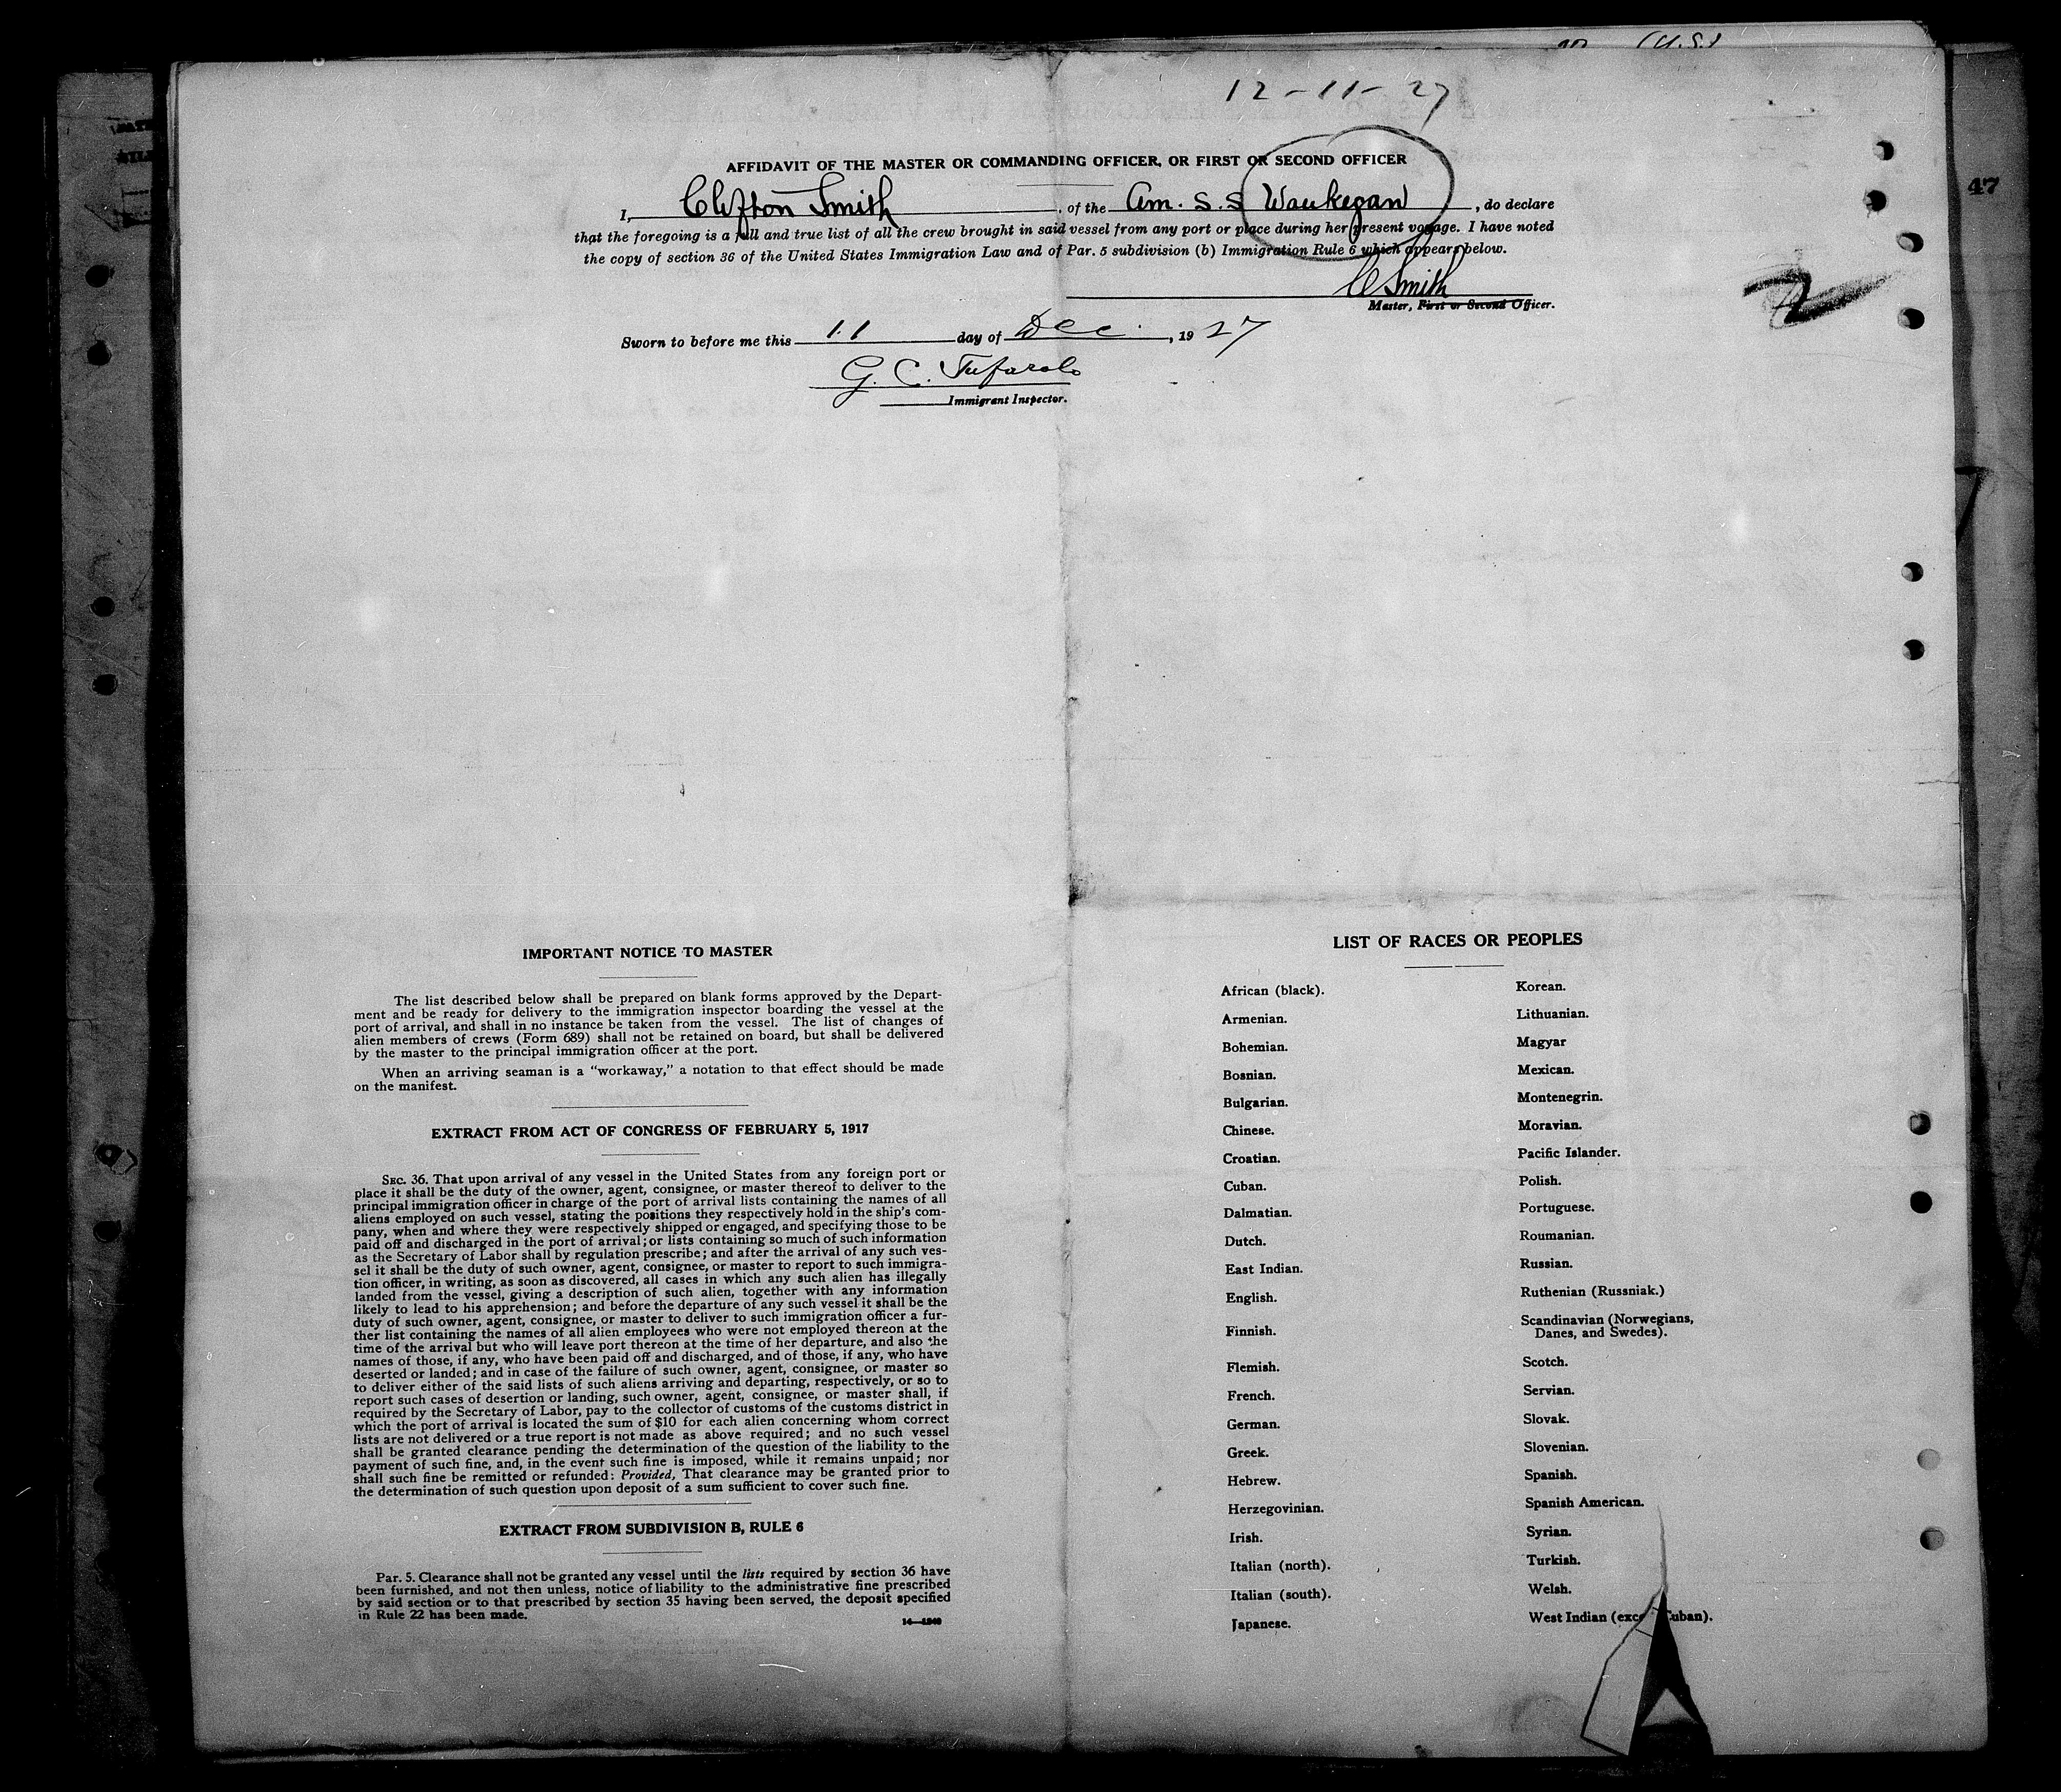 12-11-27
47
AFFIDAVIT OF THE MASTER OR COMMANDING OFFICER, OR FIRST OR SECOND OFFICER
I, Clifton Smith, of the Am. S.S Waukegan, do declare
that the foregoing is a full and true list of all the crew brought in said vessel from any port or place during her present voyage. I have noted
the copy of section 36 of the United States Immigration Law and of Par. 5 subdivision (b) Immigration Rule 6 which appears below.
C Smith
Master, First or Second Officer.
2
Sworn to before me this 11 day of Dec., 1927
G. C.
Immigrant Inspector.
IMPORTANT NOTICE TO MASTER
The list described below shall be prepared on blank forms approved by the Depart-
ment and be ready for delivery to the immigration inspector boarding the vessel at the
port of arrival, and shall in no instance be taken from the vessel. The list of changes of
alien members of crews (Form 689) shall not be retained on board, but shall be delivered
by the master to the principal immigration officer at the port.
When an arriving seaman is a "workaway," a notation to that effect should be made
on the manifest.
EXTRACT FROM ACT OF CONGRESS OF FEBRUARY 5, 1917
SEC. 36. That upon arrival of any vessel in the United States from any foreign port or
place it shall be the duty of the owner, agent, consignee, or master thereof to deliver to the
principal immigration officer in charge of the port of arrival lists containing the names of all
aliens employed on such vessel, stating the positions they respectively hold in the ship's com-
pany, when and where they were respectively shipped or engaged, and specifying those to be
paid off and discharged in the port of arrival; or lists containing so much of such information
as the Secretary of Labor shall by regulation prescribe; and after the arrival of any such ves-
sel it shall be the duty of such owner, agent, consignee, or master to report to such immigra-
tion officer, in writing, as soon as discovered, all cases in which any such alien has illegally
landed from the vessel, giving a description of such alien, together with any information
likely to lead to his apprehension; and before the departure of any such vessel it shall be the
duty of such owner, agent, consignee, or master to deliver to such immigration officer a fur-
ther list containing the names of all alien employees who were not employed thereon at the
time of the arrival but who will leave port thereon at the time of her departure, and also the
names of those, if any, who have been paid off and discharged, and of those, if any, who have
deserted or landed; and in case of the failure of such owner, agent, consignee, or master so
to deliver either of the said lists of such aliens arriving and departing, respectively, or so to
report such cases of desertion or landing, such owner, agent, consignee, or master shall, if
required by the Secretary of Labor, pay to the collector of customs of the customs district in
which the port of arrival is located the sum of $10 for each alien concerning whom correct
lists are not delivered or a true report is not made as above required; and no such vessel
shall be granted clearance pending the determination of the question of the liability to the
payment of such fine, and, in the event such fine is imposed, while it remains unpaid; nor
shall such fine be remitted or refunded: Provided, That clearance may be granted prior to
the determination of such question upon deposit of a sum sufficient to cover such fine.
EXTRACT FROM SUBDIVISION B, RULE 6
Par. 5. Clearance shall not be granted any vessel until the lists required by section 36 have
been furnished, and not then unless, notice of liability to the administrative fine prescribed
by said section or to that prescribed by section 35 having been served, the deposit specified
in Rule 22 has been made.
LIST OF RACES OR PEOPLES
African (black).
Armenian.
Bohemian.
Bosnian.
Bulgarian.
Chinese.
Croatian.
Cuban.
Dalmatian.
Dutch.
East Indian.
English.
Finnish.
Flemish.
French.
German.
Greek.
Hebrew.
Herzegovinian.
Irish.
Italian (north).
Italian (south).
Japanese.
Korean.
Lithuanian.
Magyar
Mexican.
Montenegrin.
Moravian.
Pacific Islander.
Polish.
Portuguese.
Roumanian.
Russian.
Ruthenian (Russniak.)
Scandinavian (Norwegians,
Danes, and Swedes).
Scotch.
Servian.
Slovak.
Slovenian.
Spanish.
Spanish American.
Syrian.
Turkish.
Welsh.
West Indian (exce Cuban).